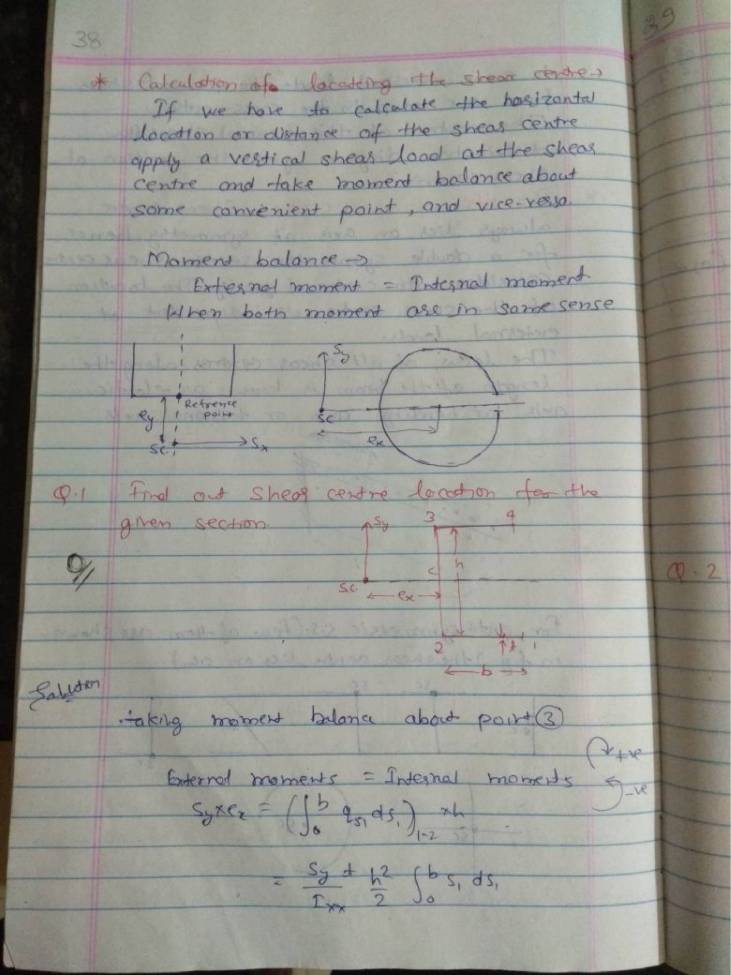 38
39
* Calculation of locateing the shear centre→
If we have to calculate the horizontal
location or distance of the shear centre
apply a vertical shear load at the shear
centre and take moment balance about
some convenient point, and vice-versa.
Moment balance →
External moment = Internal moment
When both moment are in same sense
Refrence
point
ey
SC.
Sx
Sy
SC
ex
Q.1 Find out Shear centre location for the
given section.
Sy
3
4
c
h
SC.
ex
2
t
1
b
Q.2
Solution
taking moment balance about point ③
External moments = Internal moments
+ve
-ve
Sy×ex = (∫₀ᵇ qs₁ ds₁)₁₋₂ ×h
= Sy t/Ixx h²/2 ∫₀ᵇ s₁ ds₁